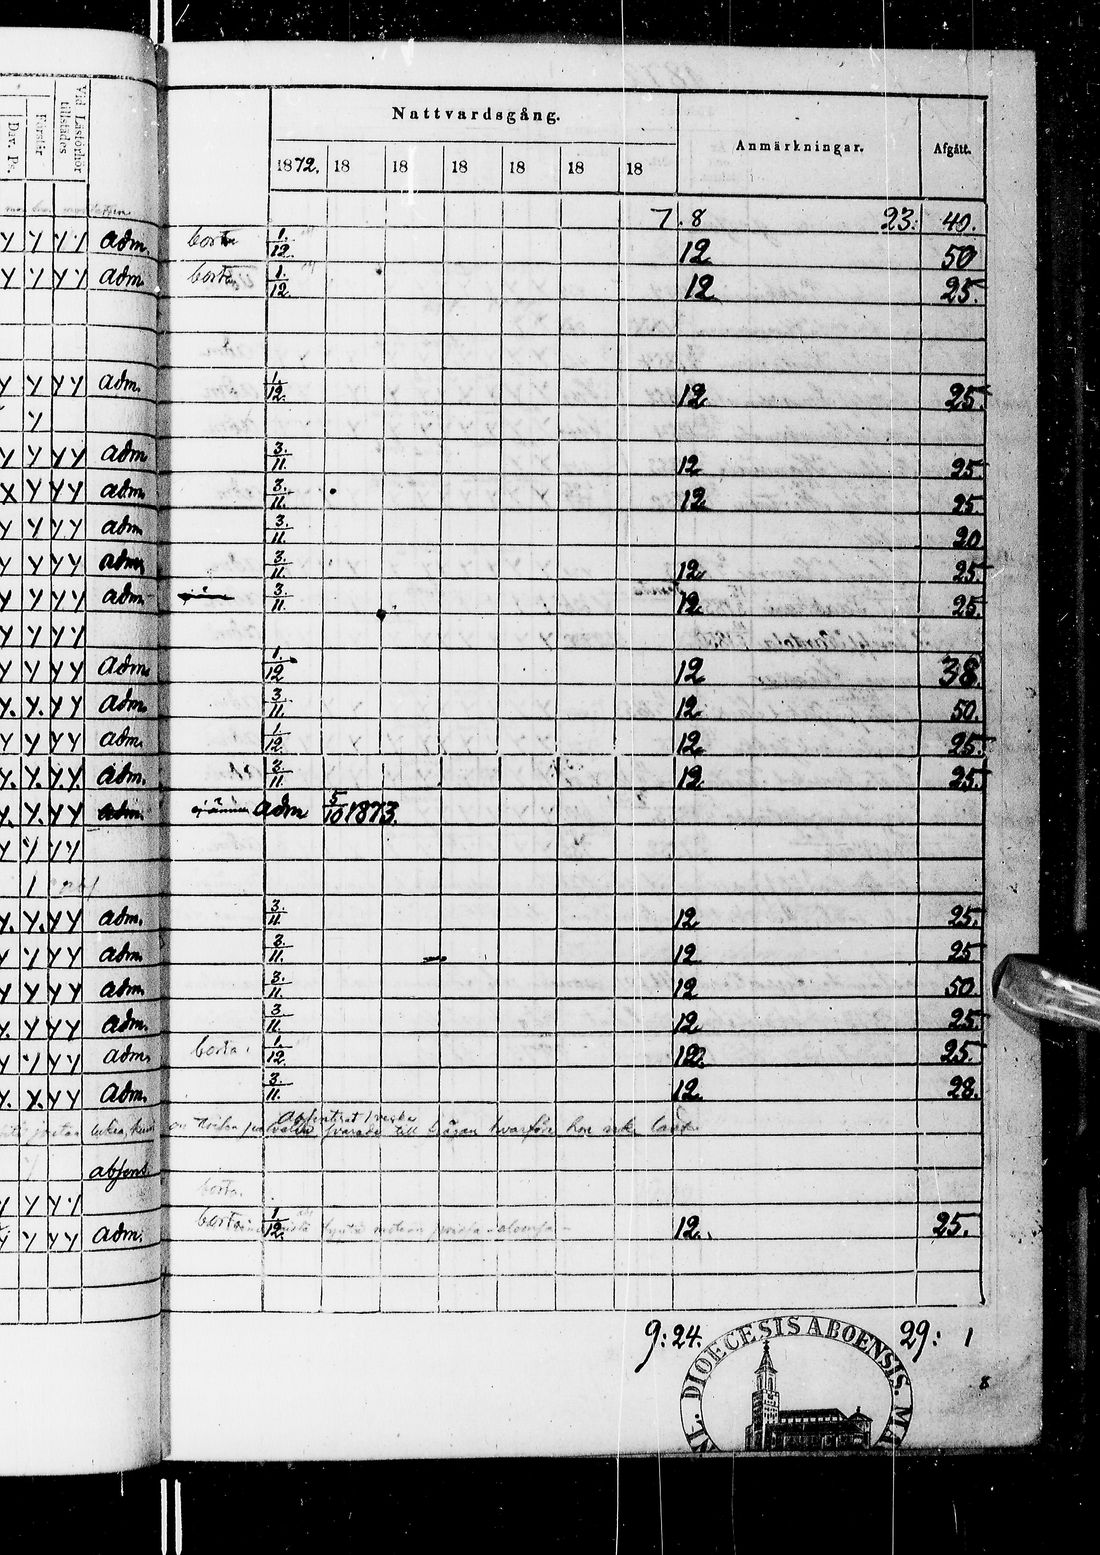 Nattvardsgång.
Anmärkningar. Afgått.
Vid Läsförhör tillstädes
Förstår
Dav. Ps.
1872. 18 18 18 18 18 18
7. 8 23: 40.
y y y y adm. borta 1/12. 12 50
y y y y adm. borta 1/12. 12 25.
y y y y adm. 1/12. 12 25.
y
y y y y adm 3/11. 12 25.
x y y y adm. 3/11. 12 25
y y y y adm 3/11. 20
y y y y adm 3/11. 12 25.
y y y y adm 3/11. 12 25.
y y y y
y y y y adm. 1/12 12 38.
y. y. y y adm. 3/11. 12 50.
y y y y adm. 1/12. 12 25.
y. y. y. y. adm. 3/11. 12 25
y. y. y y adm. adm 5/10 1873.
y y y y
y. y. y y adm. 3/11. 12 25.
y y y y adm. 3/11. 12 25
y y y y adm. 3/11. 12 50.
y. y y y adm. 3/11. 12 25.
y y y y adm. borta. 1/12. 12 25.
y. y. y y adm. 3/11. 12 28.
svarade till frågan hvarföre hon
absent.
borta.
y y y y
y y y y adm. borta 1/12. 12. 25.
9:24. 29: 1
DIOECESIS ABOENSIS.
8